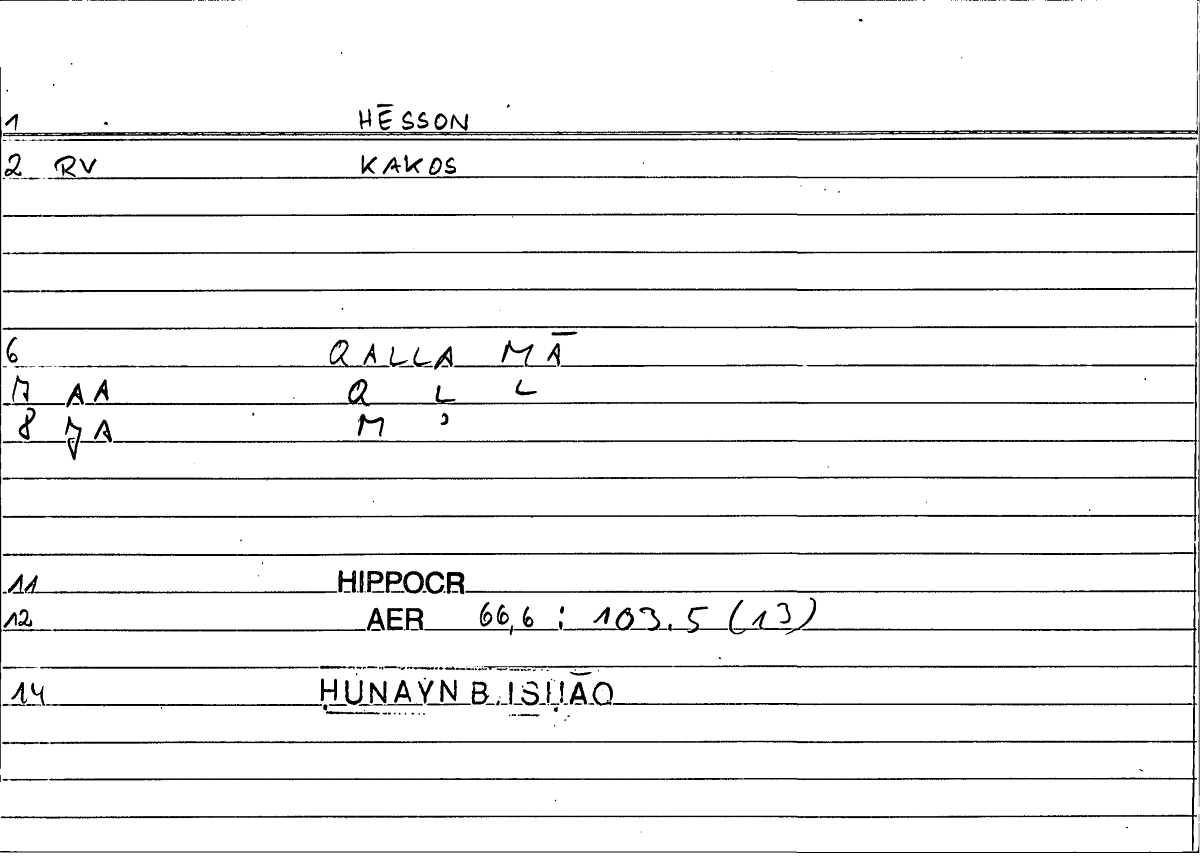 1 HĒSSON
2 RV KAKOS
6 QALLA MĀ
7 AA Q L L
8 JA M ʾ
11 HIPPOCR
12 AER 66,6 : 103.5 (13)
14 ḤUNAYN B. ISḤĀQ